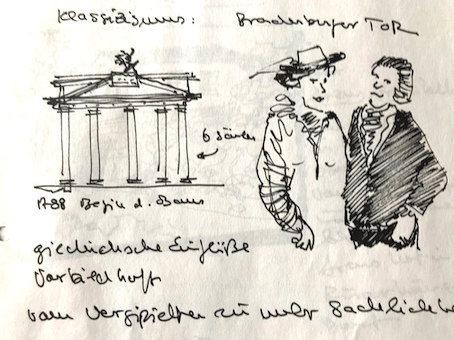 Klassizismus: Bradenburger TOR
6 Säulen
1788 Begin d. Baus
giechichsche Einflüße
Vorbildhaft
vom Verspielten zu mehr Sachlichke